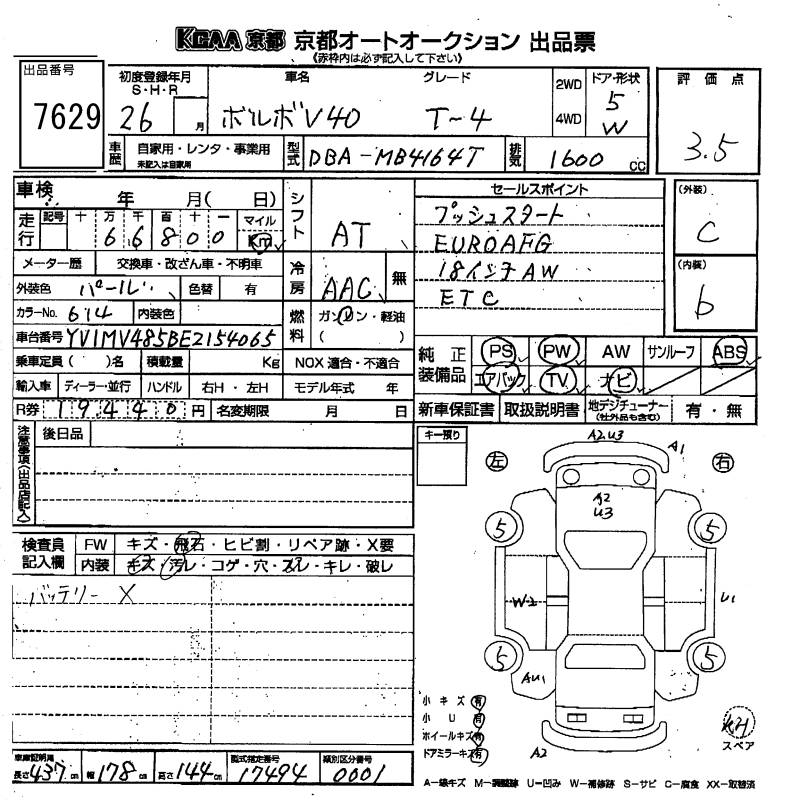 KCAA 京都 京都オートオークション 出品票
《赤枠内は必ず記入して下さい》
出品番号 7629
初度登録年月 S・H・R 26 月
車名 ボルボV40
グレード T-4
2WD 4WD
ドア・形状 5 W
評価点 3.5
車歴 自家用・レンタ・事業用 未記入は自家用
型式 DBA-MB4164T
排気 1600 CC
車検 年 月( 日)
シフト AT
セールスポイント
プッシュスタート
EUROAFG
18インチAW
ETC
(外装) C
(内装) b
走行 記号 十 万 千 百 十 一 66800 マイル Km
メーター歴 交換車・改ざん車・不明車
冷房 AAC 無
外装色 パール 色替 有
カラーNo. 614 内装色
燃料 ガソリン・軽油 ( )
車台番号 YV1MV485BE2154065
乗車定員( )名 積載量 Kg NOX 適合・不適合
輸入車 ディーラー・並行 ハンドル 右H・左H モデル年式 年
R券 19440円 名変期限 月 日
純正装備品 PS PW AW サンルーフ ABS
エアバック TV ナビ
新車保証書 取扱説明書 地デジチューナー (社外品も含む) 有・無
注意事項(出品店記入)
後日品
キー預り
左 右
A2.U3
A1
A2
U3
5 5
W2
U1
5 5
AU1
A2
検査員記入欄 FW キズ・飛石・ヒビ割・リペア跡・X要
内装 キズ・汚レ・コゲ・穴・ズレ・キレ・破レ
バッテリー X
小キズ 有
小U 有
ホイールキズ 有
ドアミラーキズ 有
スペア
車庫証明用 長さ437cm 幅178cm 高さ144cm
型式指定番号 17494
類別区分番号 0001
A-線キズ M-調整跡 U-凹み W-補修跡 S-サビ C-腐食 XX-取替済